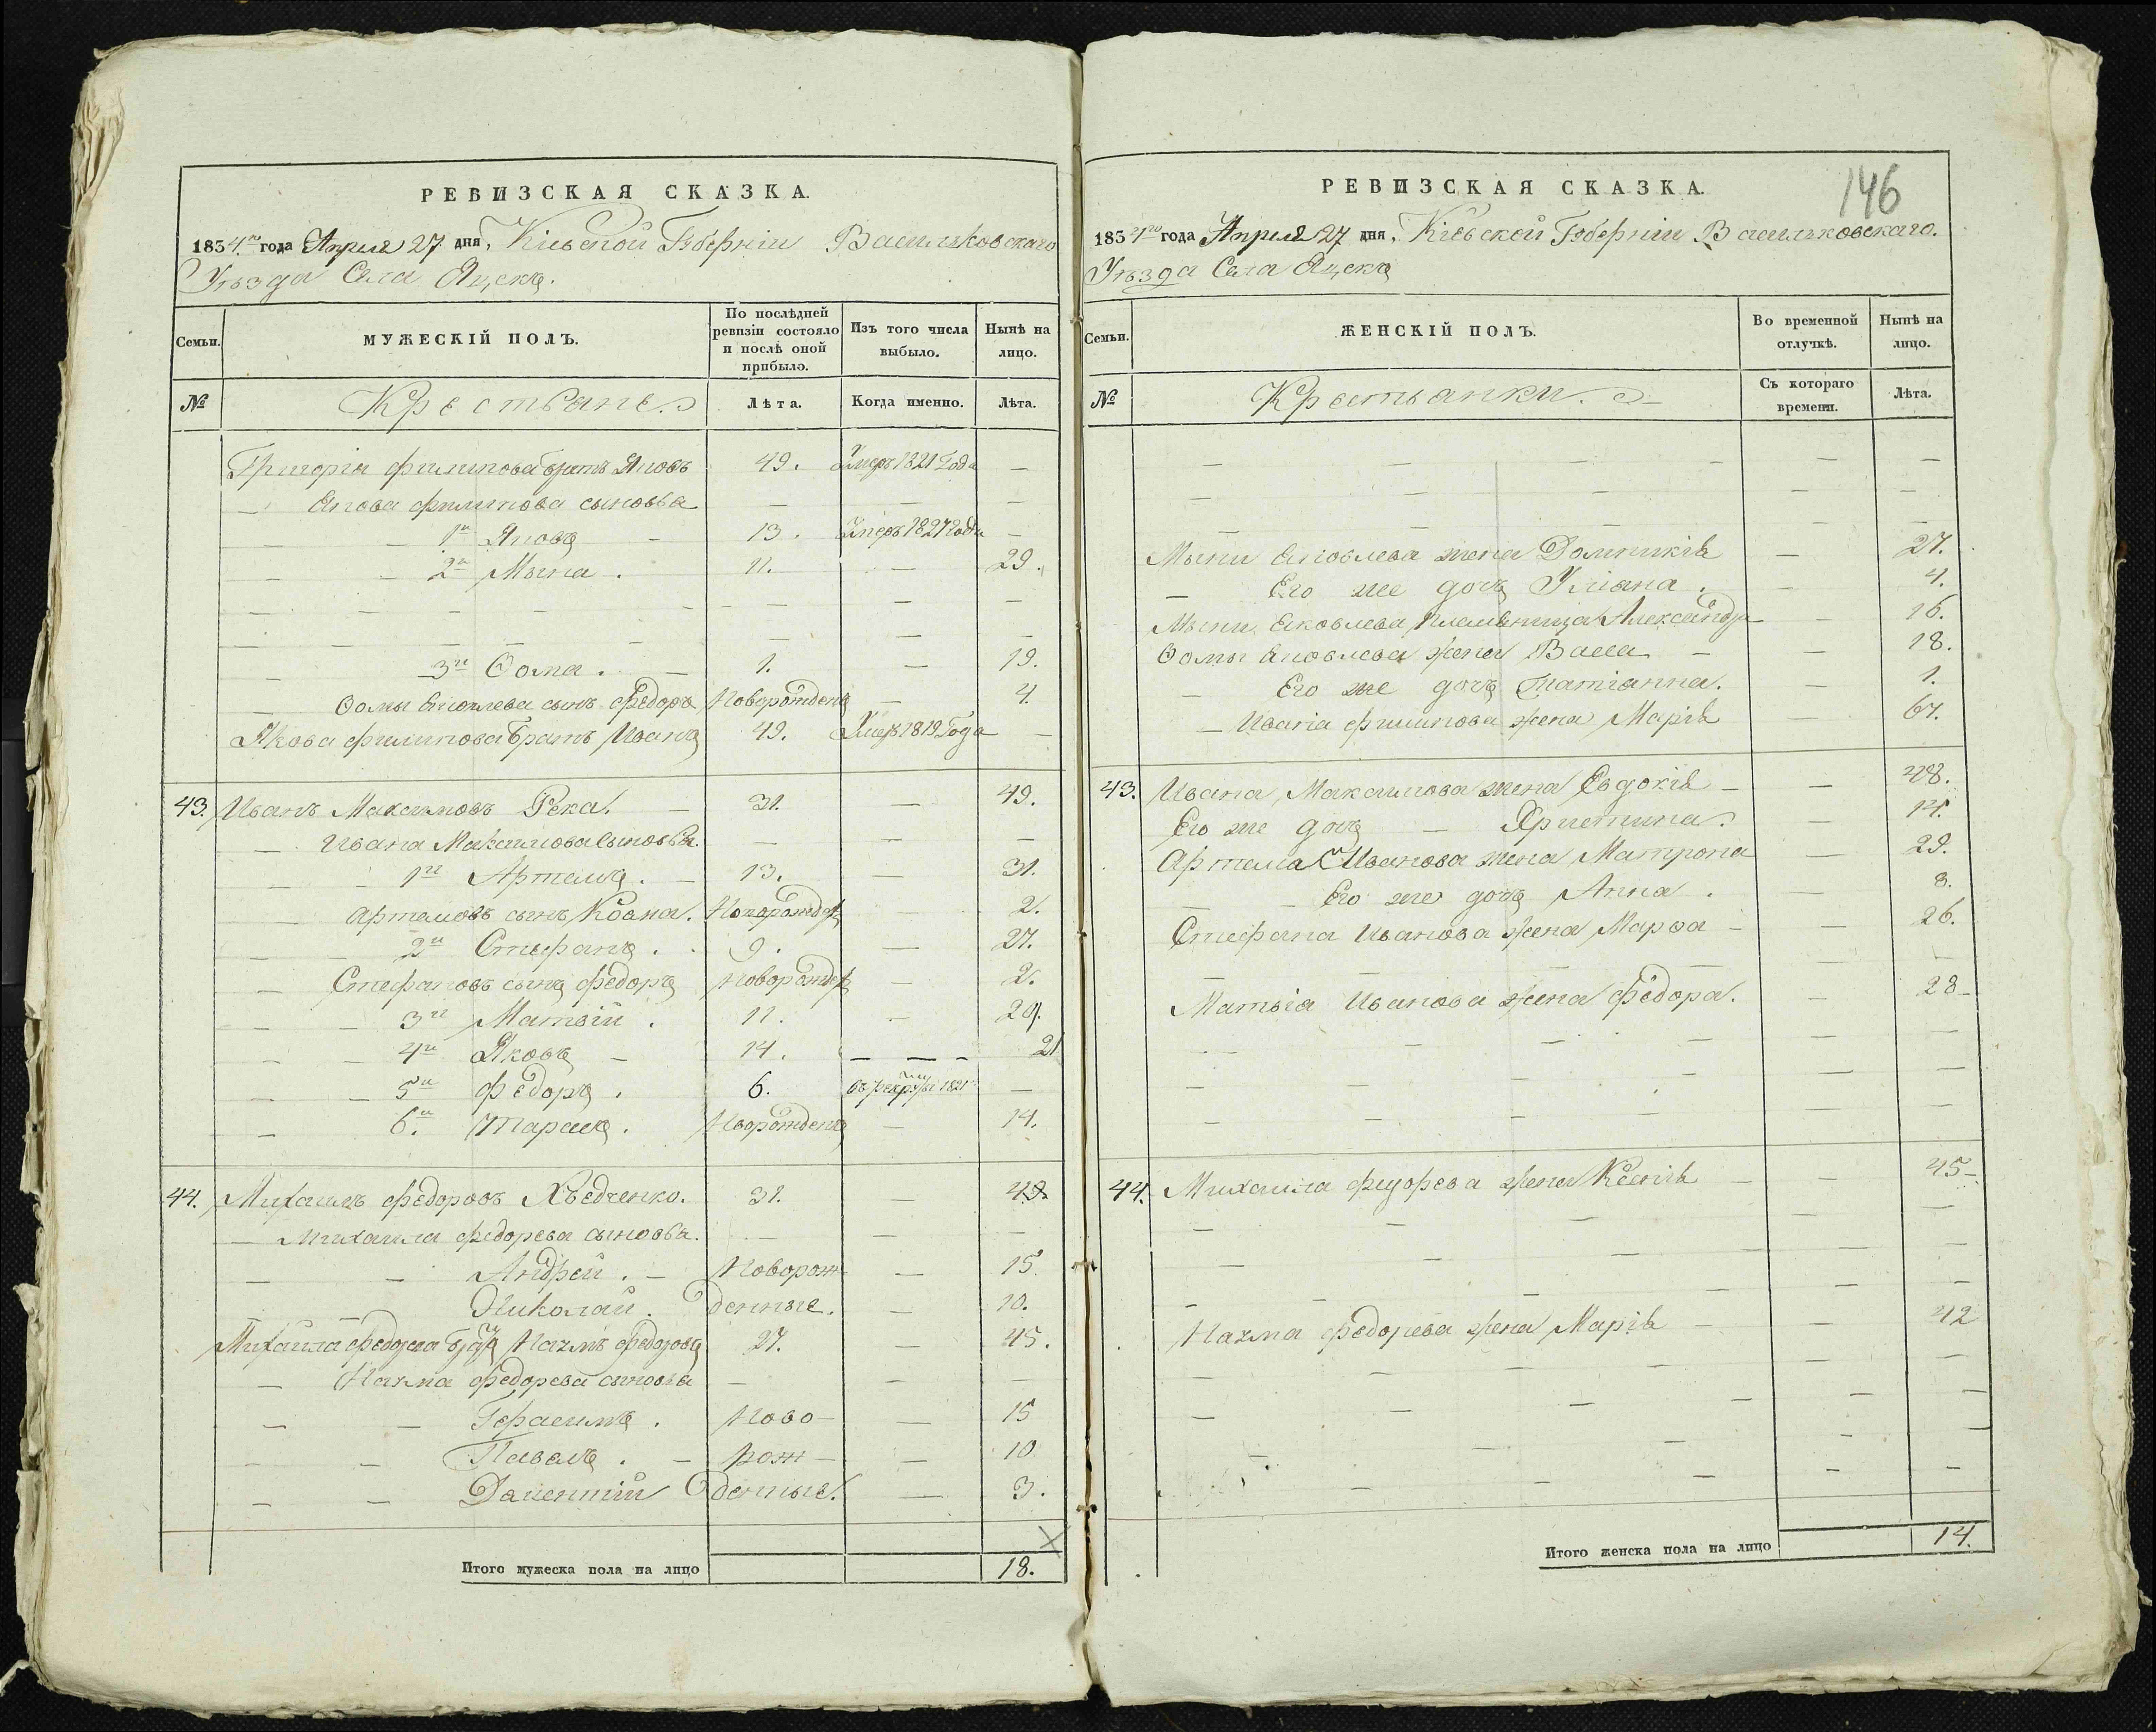 РЕВИЗСКАЯ СКАЗКА.
1834го года Апреля 27 дня, Кіевской Губерніи Васильковскаго
Уезда Села Яцекъ.
Семьи. МУЖЕСКІЙ ПОЛЪ. По послѣдней ревизіи состояло и послѣ оной прибыло. Изъ того числа выбыло. Нынѣ на лицо.
№ Крестьяне. Лѣта. Когда именно. Лѣта.
Григорія Филипова братъ Яковъ 49. Умеръ 1821 Года —
— Якова Филипова сыновья — — —
1й Яковъ — 13. Умеръ 1827 Года —
2й Мына. 11. — 29.
3й Ѳома. — 1. — 19.
Ѳомы Яковлева сынъ Федоръ Новорожденъ — 4.
Якова Филипова братъ Иванъ 49. Умеръ 1819 Года —
43. Иванъ Максимовъ Река. — 31. — 49.
Ивана Максимова сыновья. — — —
1й Артемъ. — 13. — 31.
Артемовъ сынъ Новорожден 2.
2й Стефанъ. 9. — 27.
Стефановъ сынъ Федоръ Новорожден — 2.
3й Матвій. 11. — 29.
4й Яковъ — 14. — — — 21
5й Федоръ. 6. въ рекруты 1821 —
6й Тарасъ. Новорожденъ — 14.
44. Михаилъ Федоровъ 31. — 49.
— Михаила Федорева сыновья. — — —
Андрей. — Новорож — 15.
Николай. денные. — 10.
Михаила Федорева братъ Наумъ Федоровъ 27. — 45.
— Наума Федорева сыновья — — —
Герасимъ. Ново — — 15
Павелъ. — рож — — 10
денные. — 3.
Итого мужеска пола на лицо 18.
146
РЕВИЗСКАЯ СКАЗКА.
1834го года Апреля 27 дня, Кіевской Губерніи Васильковскаго.
Уезда Села Яцекъ
Семьи. ЖЕНСКІЙ ПОЛЪ. Во временной отлучкѣ. Нынѣ на лицо.
№ Крестьянки. Съ котораго времени. Лѣта.
Мыны Яковлева жена Доминикія — 27.
— Его же дочь Уліана. — 4.
Мыны Яковлева племѣница Александра — 16.
Ѳомы Яковлева жена Васса — — 18.
— Его же дочь Татіанна. — 1.
— Иванія Филипова жена Марія — 67.
43. Ивана Максимова жена Евдокія — — 48.
Его же дочь — Христина. — 14.
Артема Иванова жена Матрона — 29.
Его же дочь Анна. — 8.
Стефана Иванова жена Марѳа — — 26.
Матвія Иванова жена Федора. — 28
44. Михаила Федорева жена Ксенія — — 45
Наума Федорева жена Марія — — 42
Итого женска пола на лицо 14.